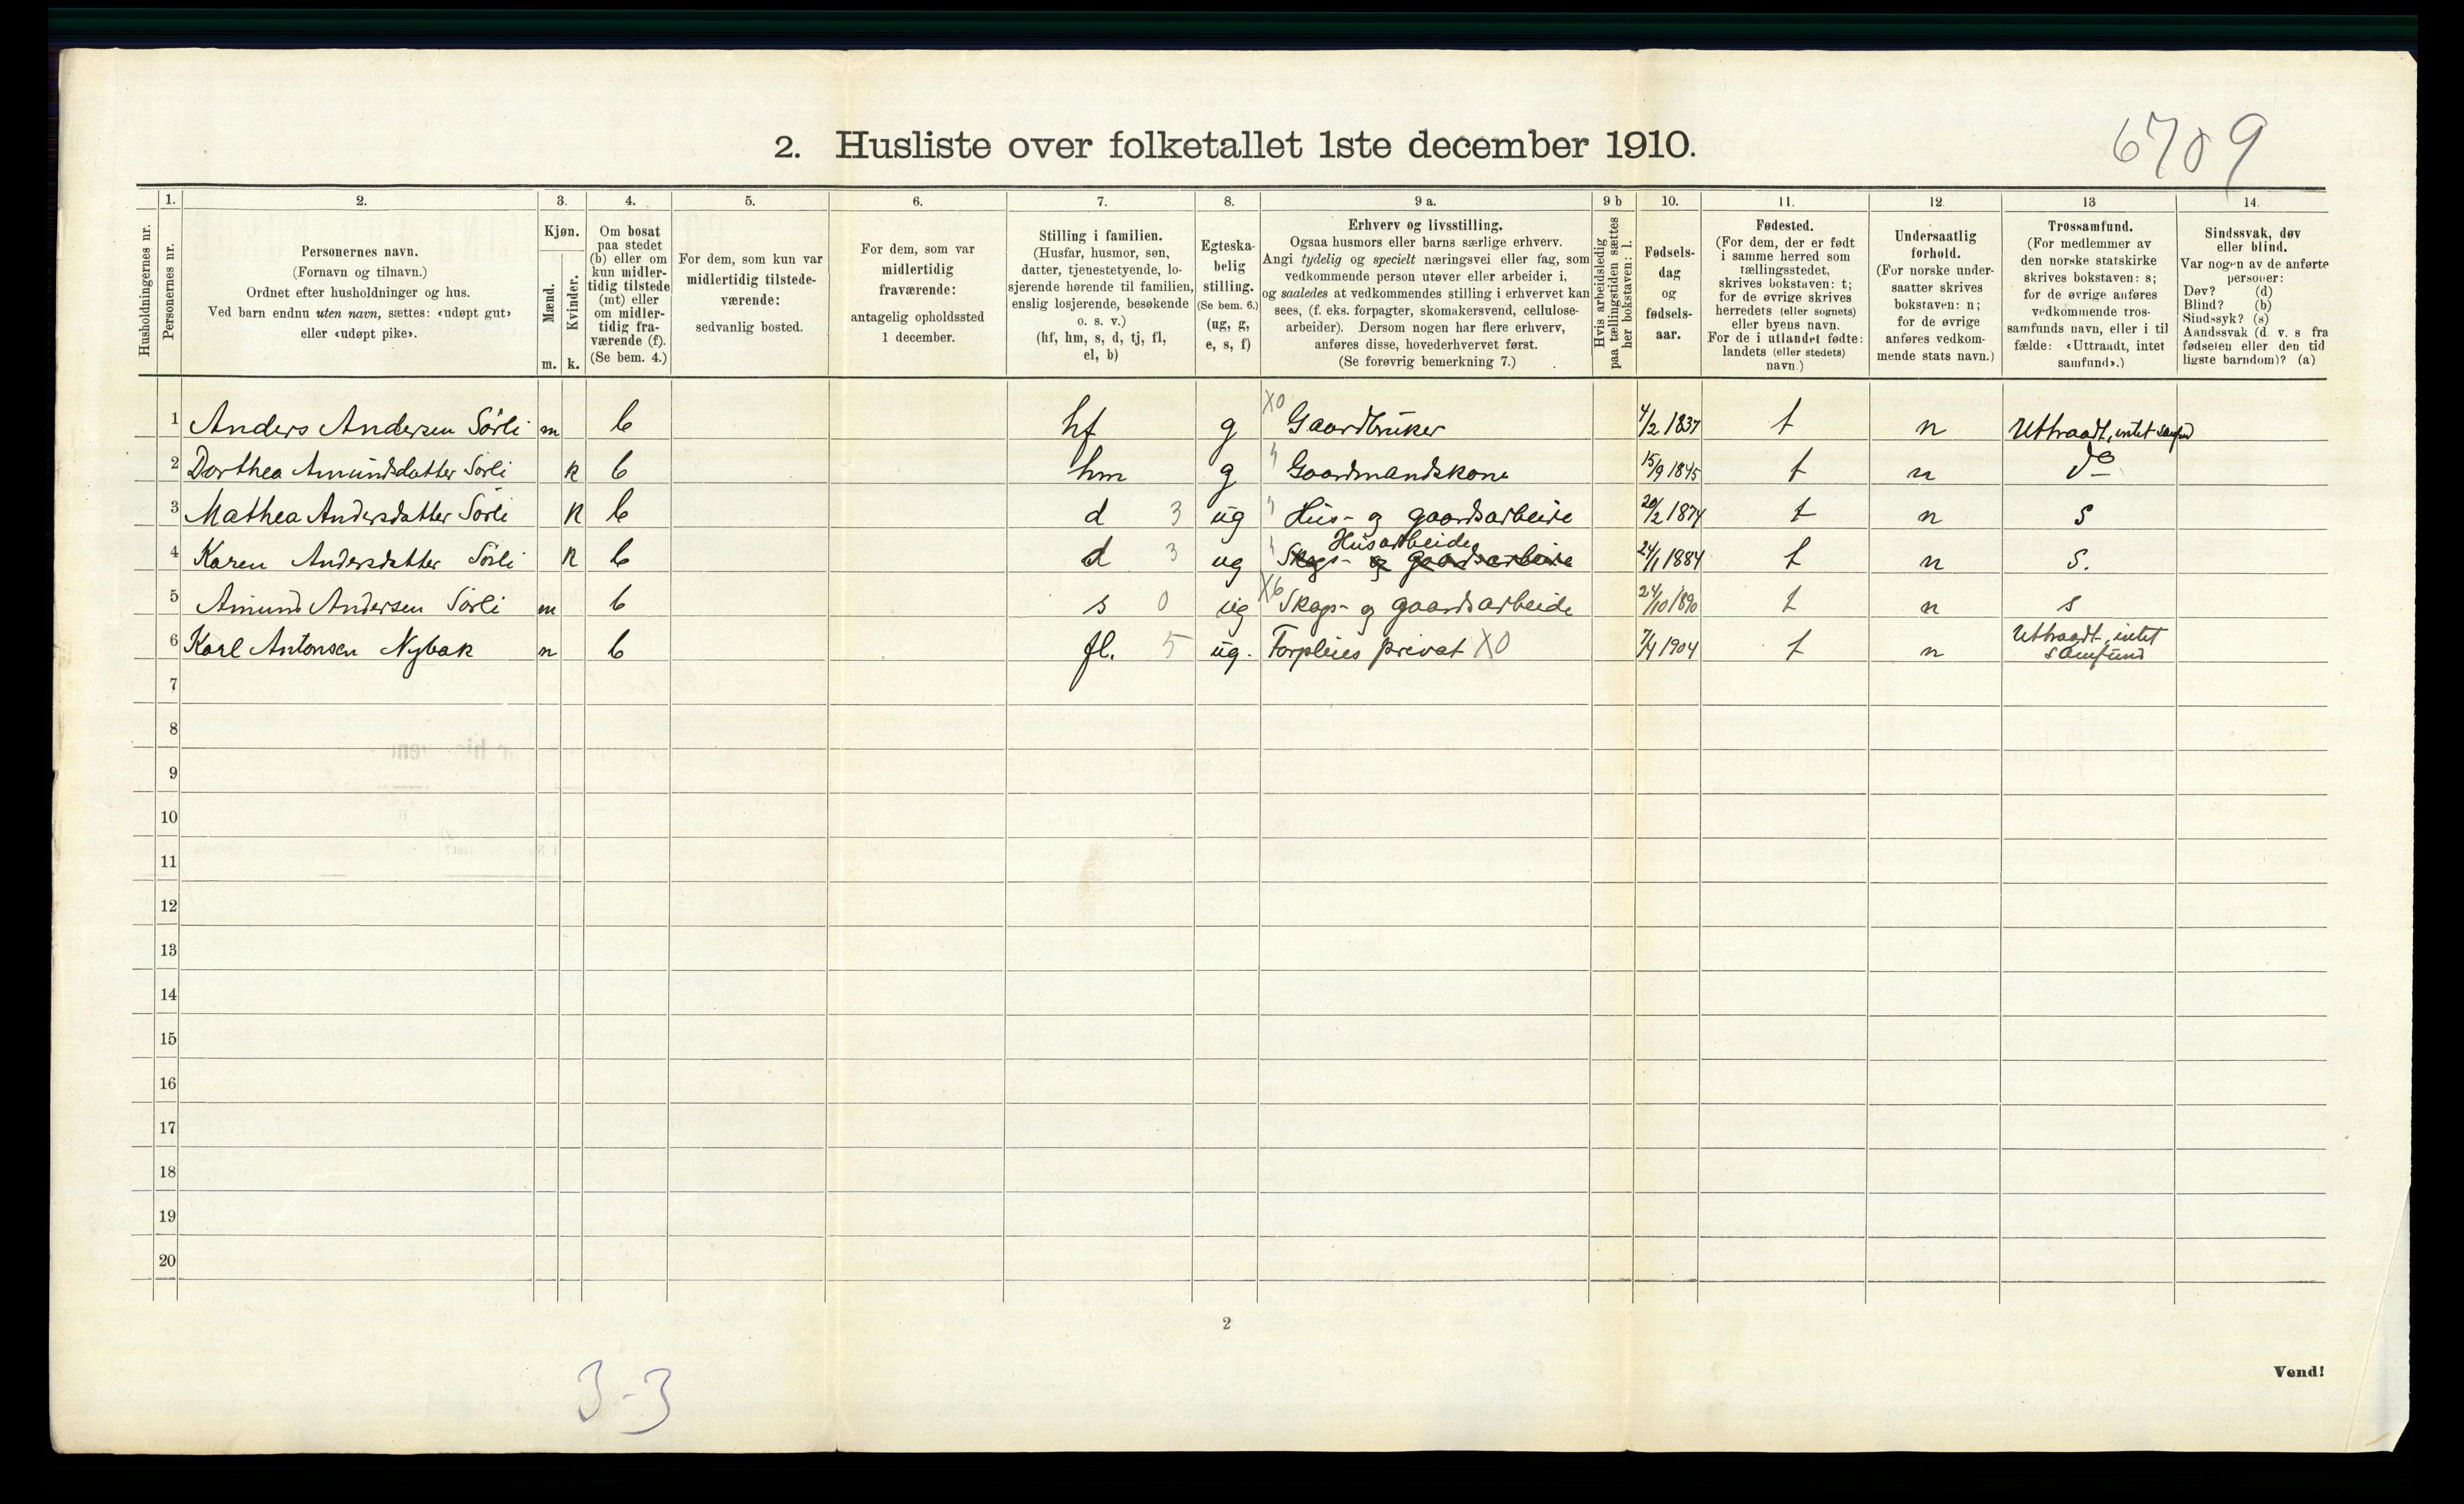 2. Husliste over folketallet 1ste december 1910.
6709
Husholdningernes nr.
1.
Personernes nr.
2.
Personernes navn.
(Fornavn og tilnavn.)
Ordnet efter husholdninger og hus.
Ved barn endnu uten navn, sættes: «udøpt gut»
eller «udøpt pike».
3.
Kjøn.
Mænd.
Kvinder.
m. k.
4.
Om bosat
paa stedet
(b) eller om
kun midler-
tidig tilstede
(mt) eller
om midler-
tidig fra-
værende (f).
(Se bem. 4.)
5.
For dem, som kun var
midlertidig tilstede-
værende:
sedvanlig bosted.
6.
For dem, som var
midlertidig
fraværende:
antagelig opholdssted
1 december.
7.
Stilling i familien.
(Husfar, husmor, søn,
datter, tjenestetyende, lo-
sjerende hørende til familien,
enslig losjerende, besøkende
o. s. v.)
(hf, hm, s, d, tj, fl,
el, b)
8.
Egteska-
belig
stilling.
(Se bem. 6.)
(ug, g,
e, s, f)
9 a.
Erhverv og livsstilling.
Ogsaa husmors eller barns særlige erhverv.
Angi tydelig og specielt næringsvei eller fag, som
vedkommende person utøver eller arbeider i,
og saaledes at vedkommendes stilling i erhvervet kan
sees, (f. eks. forpagter, skomakersvend, cellulose-
arbeider). Dersom nogen har flere erhverv,
anføres disse, hovederhvervet først.
(Se forøvrig bemerkning 7.)
9 b
Hvis arbeidsledig
paa tællingstiden sættes
her bokstaven: l.
10.
Fødsels-
dag
og
fødsels-
aar.
11.
Fødested.
(For dem, der er født
i samme herred som
tællingsstedet,
skrives bokstaven: t;
for de øvrige skrives
herredets (eller sognets)
eller byens navn.
For de i utlandet fødte:
landets (eller stedets)
navn.)
12.
Undersaatlig
forhold.
(For norske under-
saatter skrives
bokstaven: n;
for de øvrige
anføres vedkom-
mende stats navn.)
13
Trossamfund.
(For medlemmer av
den norske statskirke
skrives bokstaven: s;
for de øvrige anføres
vedkommende tros-
samfunds navn, eller i til
fælde: «Uttraadt, intet
samfund».)
14.
Sindssvak, døv
eller blind.
Var nogen av de anførte
personer:
Døv? (d)
Blind? (b)
Sindssyk? (s)
Aandssvak (d. v. s fra
fødselen eller den tid
ligste barndom)? (a)
1 Anders Andersen Sørli m b hf g X0 Gaardbruker 4/2 1837 t n Uttraadt, intet samfund
2 Dorthea Amundsdatter Sørli k b hm g Gaardmandskone 15/9 1845 t n do
3 Mathea Andersdatter Sørli k b d 3 ug Hus- og gaardsarbeide 20/2 1874 t n s
Husarbeide
4 Karen Andersdatter Sørli k b d 3 ug Skogs- og gaardsarbeide 24/1 1884 t n s.
5 Amund Andersen Sørli m b s 0 ug X6 Skogs- og gaardsarbeide 24/10 1890 t n s
6 Karl Antonsen Nybak m b fl. 5 ug. Forpleies privat X0 7/4 1904 t n Uttraadt, intet
samfund
7
8
9
10
11
12
13
14
15
16
17
18
19
20
2
Vend!
3-3